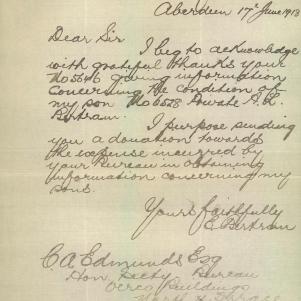 Aberdeen 17th June 1918
Dear Sir
I beg to acknowledge
with grateful thanks your
No 5646 giving information
concerning the condition of
my son No 6528 Private A. L.
Bertram.
I purpose sending
you a donation towards
the expense incurred by
your Bureau in obtaining
information concerning my
sons.
Yours faithfully
E Bertram
C. A. Edmunds Esq
Hon Secty Bureau
Verco Buildings
North Terrace